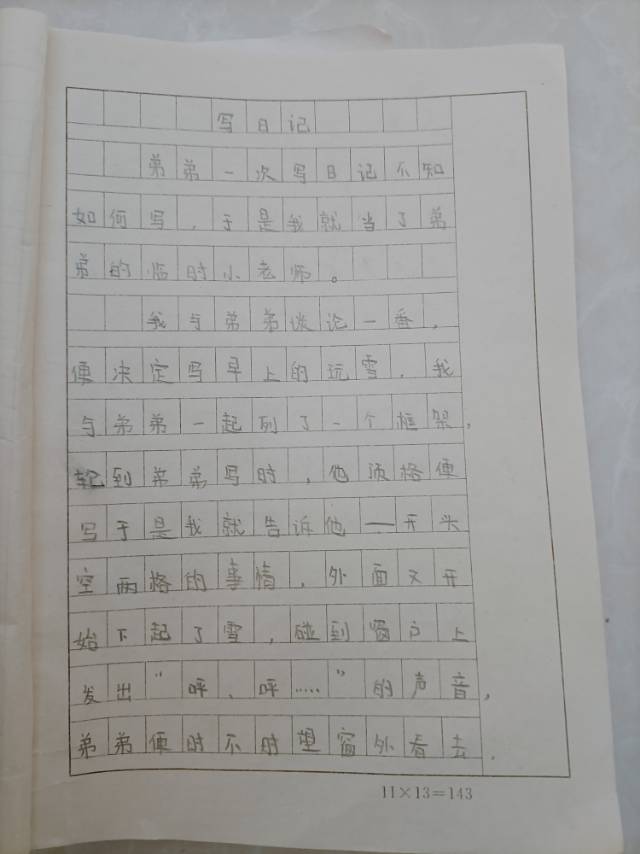 写日记
弟弟一次写日记不知
如何写，于是我就当了弟
弟的临时小老师。
我与弟弟谈论一番，
便决定写早上的玩雪，我
与弟弟一起列了一个框架，
轮到弟弟写时，他顶格便
写于是我就告诉他——开头
空两格的事情，外面又开
始下起了雪，碰到窗户上
发出“呼、呼……”的声音，
弟弟便时不时望窗外看去．
11×13=143